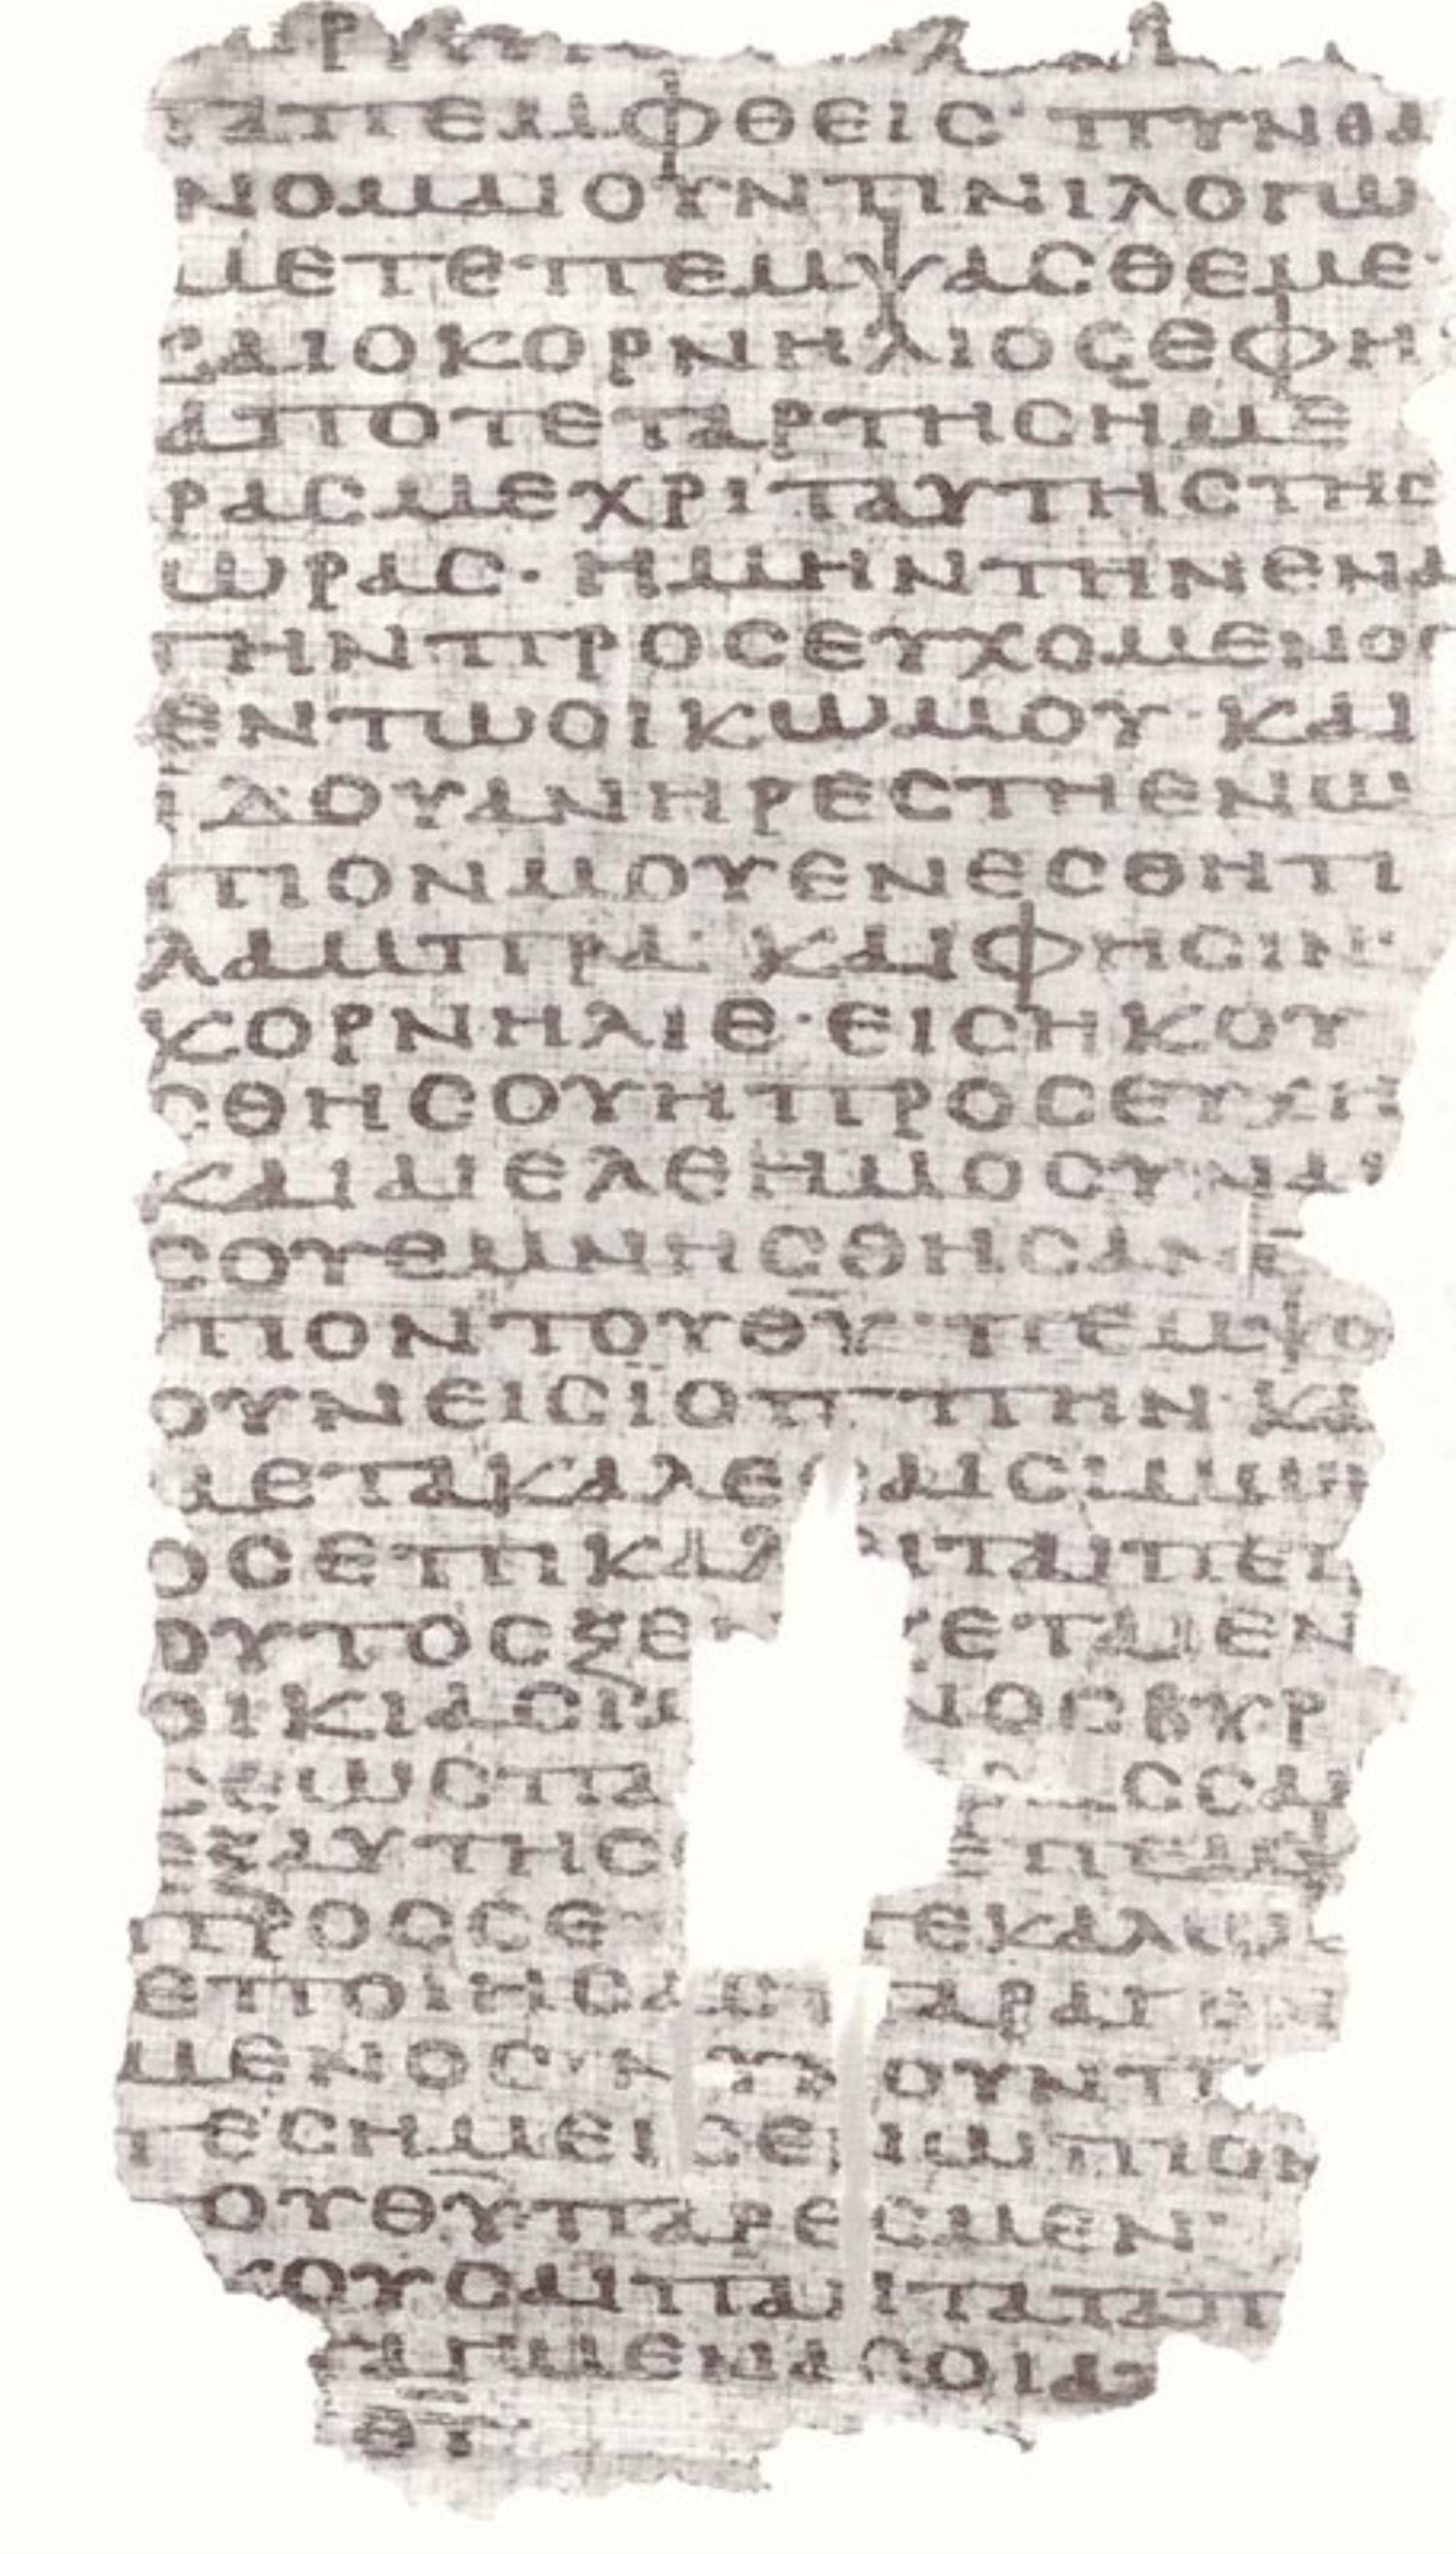 ΤΑΠΕΜΦΘΕΙΣ· ΠΥΝΘΑ
ΝΟΜΑΙΟΥΝΤΙΝΙΛΟΓΩ
ΜΕΤΕΠΕΜΨΑΣΘΕΜΕ·
ΚΑΙΟΚΟΡΝΗΛΙΟΣΕΦΗ·
ΑΠΟΤΕΤΑΡΤΗΣΗΜΕ
ΡΑΣΜΕΧΡΙΤΑΥΤΗΣΤΗΣ
ΩΡΑΣ· ΗΜΗΝΤΗΝΕΝΑ
ΤΗΝΠΡΟΣΕΥΧΟΜΕΝΟΣ
ΕΝΤΩΟΙΚΩΜΟΥ· ΚΑΙ
ΙΔΟΥΑΝΗΡΕΣΤΗΕΝΩ
ΠΙΟΝΜΟΥΕΝΕΣΘΗΤΙ
ΛΑΜΠΡΑ· ΚΑΙΦΗΣΙΝ·
ΚΟΡΝΗΛΙΕ· ΕΙΣΗΚΟΥ
ΣΘΗΣΟΥΗΠΡΟΣΕΥΧΗ
ΚΑΙΑΙΕΛΕΗΜΟΣΥΝΑΙ
ΣΟΥΕΜΝΗΣΘΗΣΑΝΕ
ΠΙΟΝΤΟΥΘ̅Υ̅· ΠΕΜΨΟ
ΟΥΝΕΙΣΪΟΠΠΗΝ· ΚΑ
ΜΕΤΑΚΑΛΕ ΑΙΣΙΜΩΝ
ΟΣΕΠΙΚΑΛ ΙΤΑΙΠΕΤ
ΟΥΤΟΣΞΕ ΕΤΑΙΕΝ
ΟΙΚΙΑΣΙΜ ΝΟΣΒΥΡ
ΣΕΩΣΠΑ ΣΣΑΝ
ΕΞΑΥΤΗΣ ΕΠΕΜΨ
ΠΡΟΣΣΕ· ΤΕΚΑΛΩΣ
ΕΠΟΙΗΣΑΣ ΠΑΡΑΓΕΝ
ΜΕΝΟΣ ΝΥΝΟΥΝΠ
ΤΕΣΗΜΕΙΣΕΝΩΠΙΟΝ
ΟΥΘ̅Υ̅ΠΑΡΕΣΜΕΝ·
ΚΟΥΣΑΙΠΑΝΤΑΤΑΠ
ΤΑΓΜΕΝΑΣΟΙΑΠ
Θ̅Υ̅